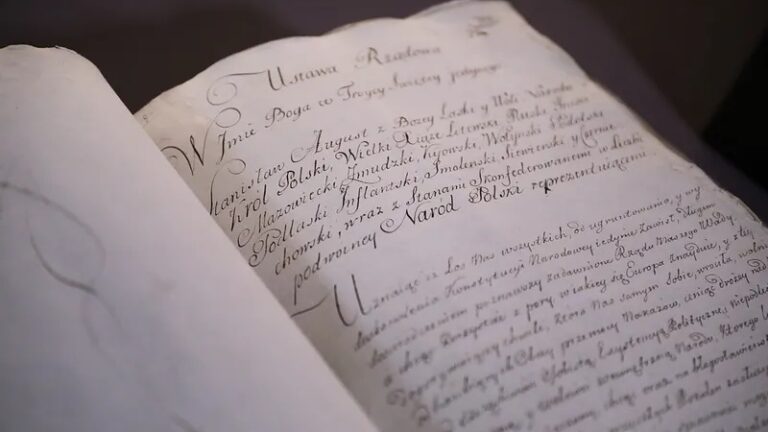 Ustawa Rządowa
W Imie Boga w Troycy Swiętey jedynego.
Stanisław August z Bożey Łaski y Woli Narodu
Krol Polski, Wielki Xiąże Litewski, Ruski, Pruski,
Mazowiecki, Zmudzki, Kijowski, Wołynski, Podolski,
Podlaski, Inflantski, Smolenski, Siewierski, y Czernie
chowski, wraz z Stanami Skonfederowanemi w Liczbie
podwoiney Narod Polski reprezentuiącemi
Uznaiąc, iż Los Nas wszystkich, od ugruntowania, y wy
doskonalenia Konstytucyi Narodowey iedynie zawisł, długim
doswiadczeniem poznawszy zadawnione Rządu Naszego Wady,
a chcąc korzystać z pory, w iakiey się Europa znayduie, y z tey
dogorywaiącey chwili, ktora Nas samym Sobie wrociła, wolni
hanbiących Obcey przemocy Nakazow, ceniąc drożey nad
szczęśliwość Osobistą, Exystencyą Polityczną, niepodle
zewnętrzną, y wolność wewnętrzną Narodu, ktorego
chcąc oraz na błogosławieństwo